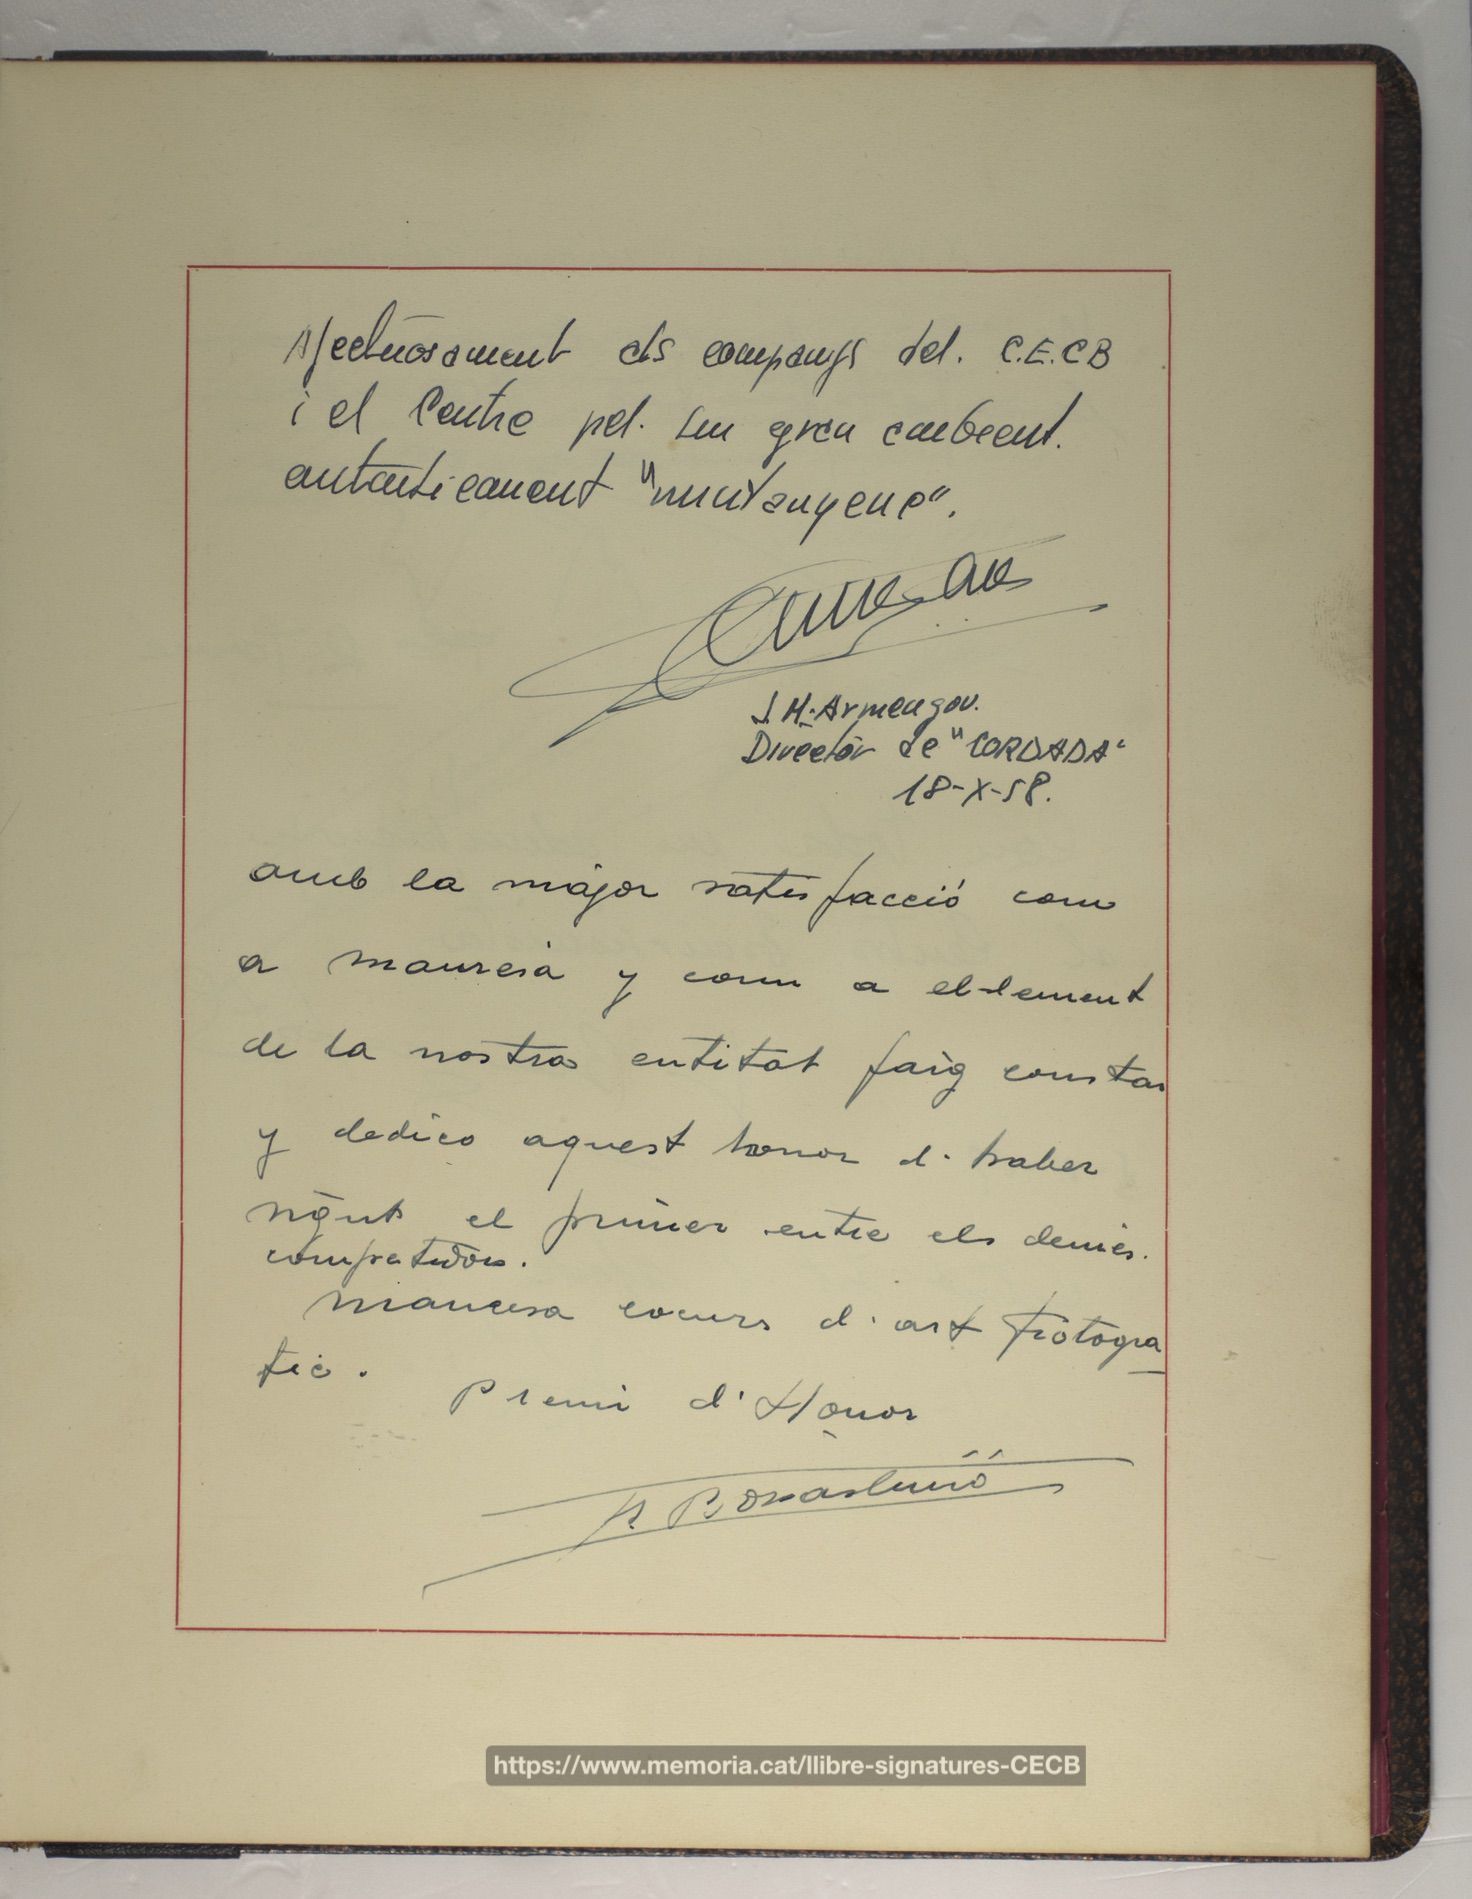 Afectuosament als companys del. C.E.C B
i el Centre pel. seu gran ambient.
autenticament "muntanyenc".
J. M. Armengou.
Director de "CORDADA"
18-X-58.
amb la major satisfacció com
a manresà y com a el-lement
de la nostra entitat faig constar
y dedico aquest honor d'haber
sigut el primer entre els demés.
competidors.
Manresa cocurs d'art fotogra
fic.
Premi d'Honor
https://www.memoria.cat/llibre-signatures-CECB